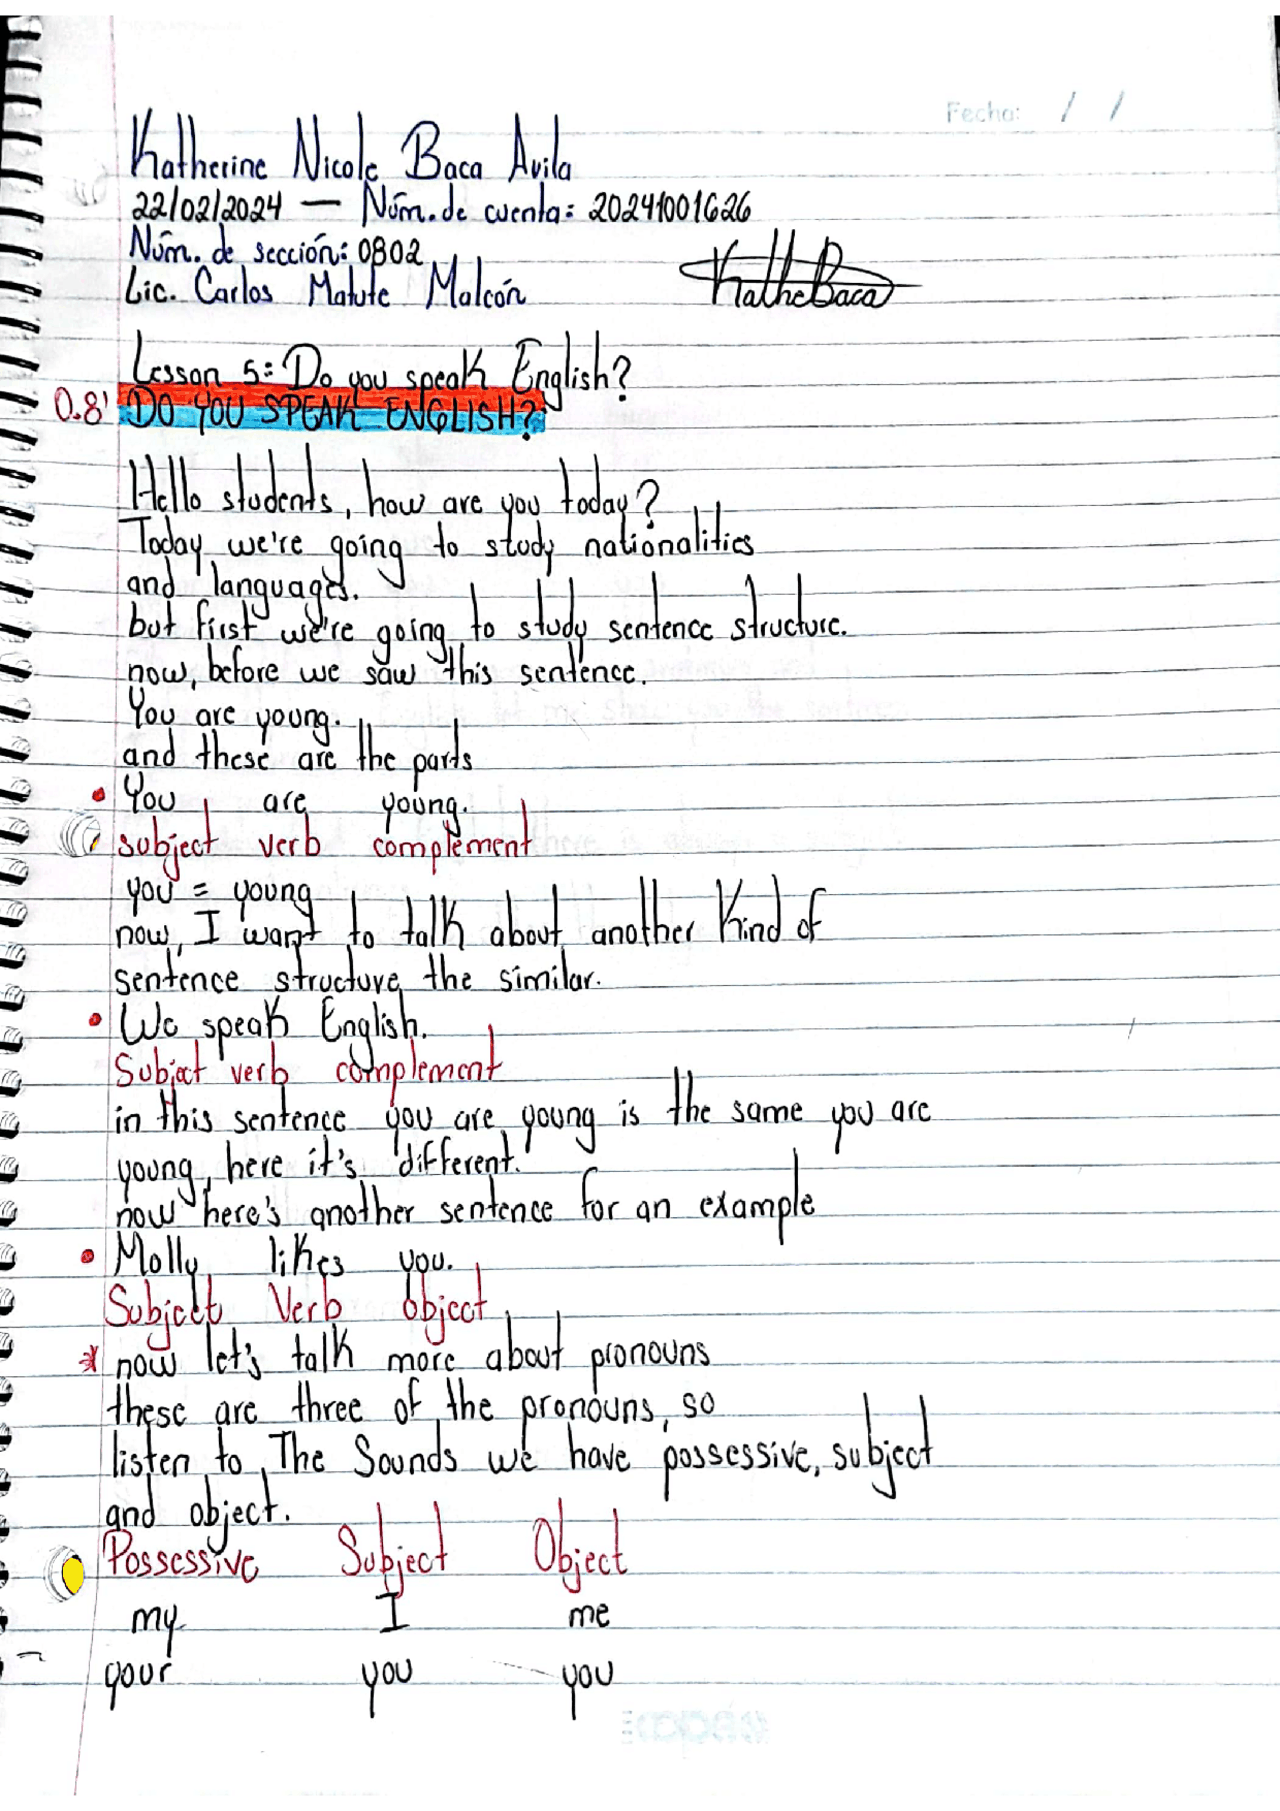 Fecha: / /
Katherine Nicole Baca Avila
22/02/2024 — Núm. de cuenta: 20241001626
Núm. de sección: 0802
Lic. Carlos Matute Malcón
KatheBaca
Lesson 5: Do you speak English?
0.8' DO YOU SPEAK ENGLISH?
Hello students, how are you today?
Today we're going to study nationalities
and languages.
but first we're going to study sentence structure.
now, before we saw this sentence.
You are young.
and these are the parts
• You are young.
subject verb complement
you = young
now, I want to talk about another kind of
sentence structure the similar.
• We speak English.
Subject verb complement
in this sentence you are young is the same you are
young, here it's different.
now here's another sentence for an example
• Molly likes you.
Subject Verb object
* now let's talk more about pronouns
these are three of the pronouns, so
listen to The Sounds we have possessive, subject
and object.
Possessive Subject Object
my I me
your you you